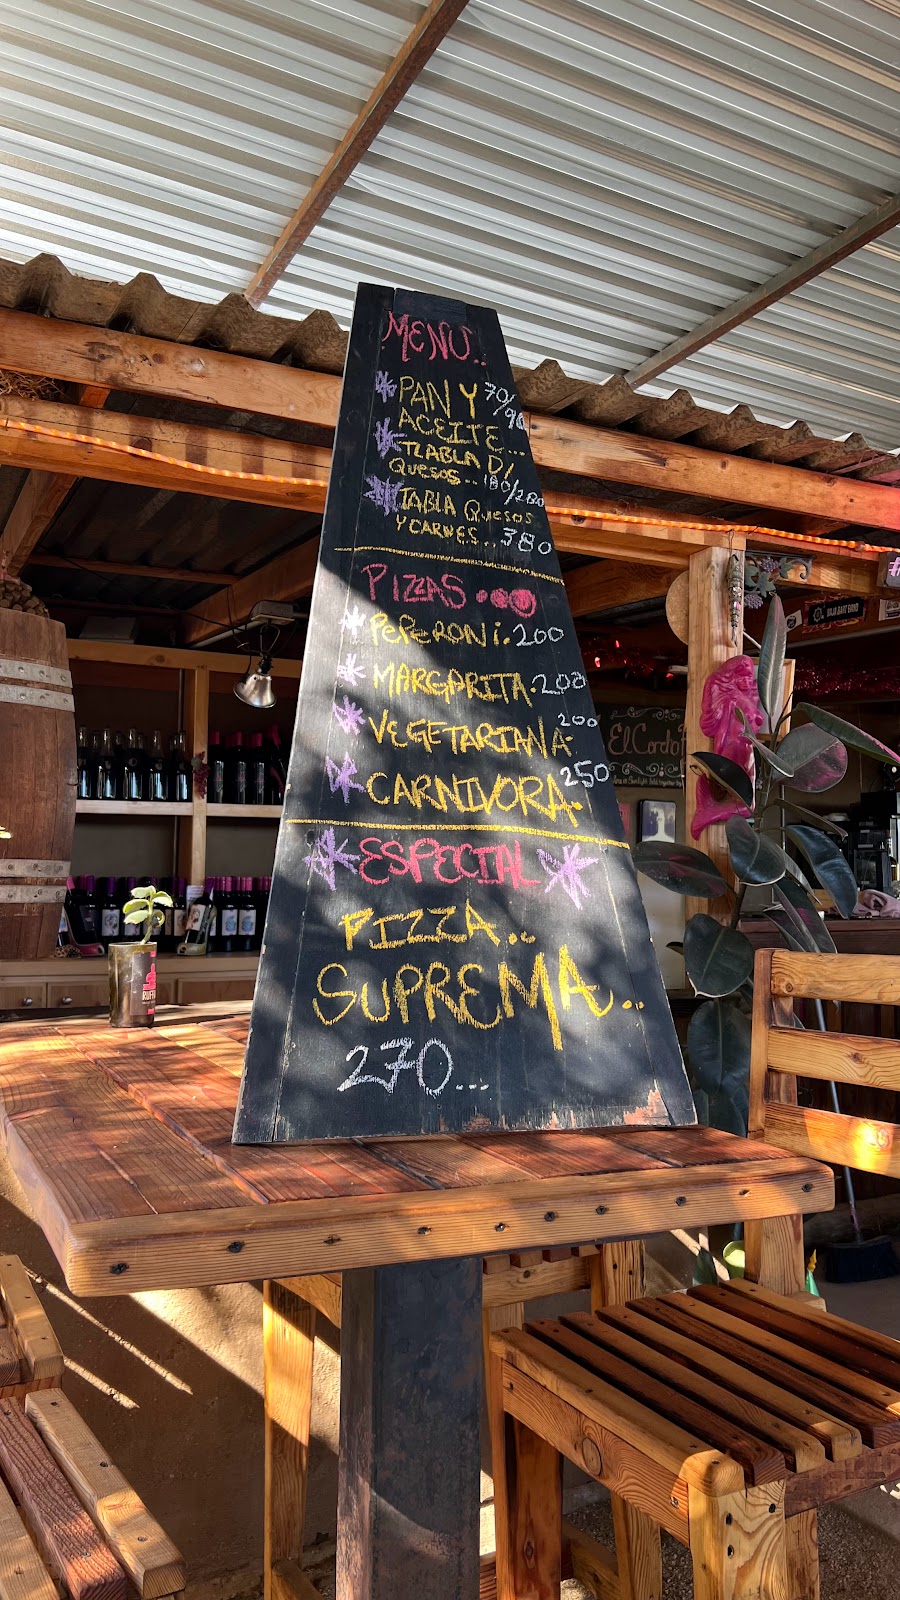 MENU..
PAN Y 70/90
ACEITE...
TLABLA D/
QUESOS.. 180/280
TABLA QUESOS
Y CARNES.. 380
PIZZAS...
PEPERONI. 200
MARGARITA. 200
VEGETARIANA. 200
CARNIVORA. 250
ESPECIAL
PIZZA..
SUPREMA..
270...
El Cordo
RUFF